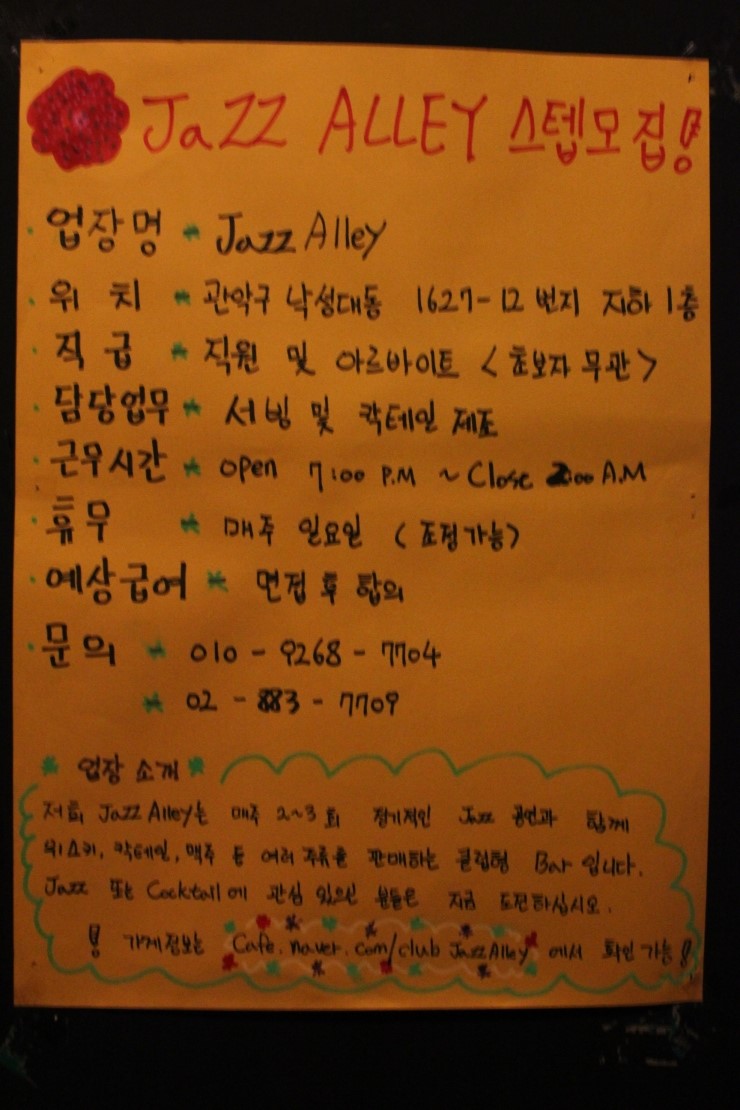 Jazz ALLEY 스텝모집!
· 업장명 * Jazz Alley
· 위치 * 관악구 낙성대동 1627-12 번지 지하 1층
· 직급 * 직원 및 아르바이트 <초보자 무관>
· 담당업무 * 서빙 및 칵테일 제조
· 근무시간 * open 7:00 P.M ~ Close 2:00 A.M
· 휴무 * 매주 일요일 (조정가능)
· 예상급여 * 면접 후 합의
· 문의 * 010-9268-7704
* 02-883-7709
* 업장 소개 *
저희 Jazz Alley는 매주 2~3회 정기적인 Jazz 공연과 함께
위스키, 칵테일, 맥주 등 여러 주류를 판매하는 클럽형 Bar 입니다.
Jazz 또는 Cocktail에 관심 있으신 분들은 지금 도전하십시오.
! 가게정보는 Cafe.naver.com/club JazzAlley 에서 확인가능!